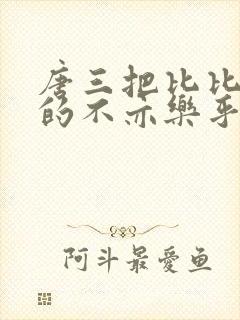 唐三把比比
的不亦樂乎
阿斗最愛鱼